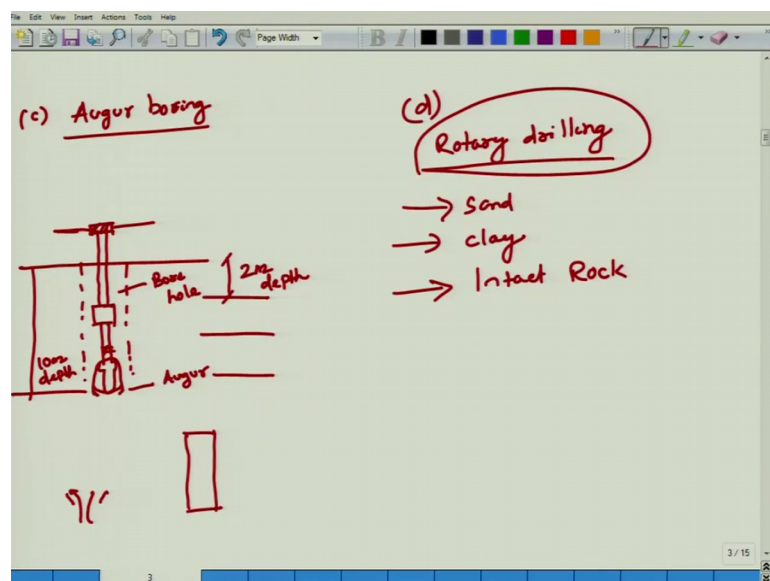 File Edit View Insert Actions Tools Help
Page Width
B I
(c) Augur boring
Bore
hole
2m
depth
10m
depth
Augur
(d)
Rotary drilling
→ Sand
→ clay
→ Intact Rock
3 / 15
3